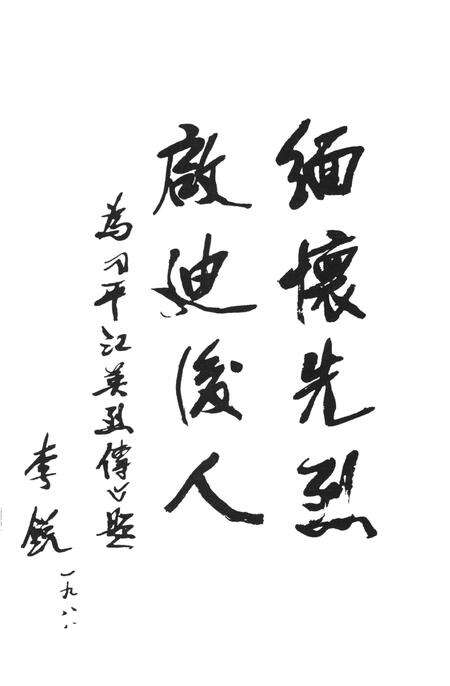 緬懷先烈
啟迪後人
為《平江英烈傳》題
李銳
一九八八